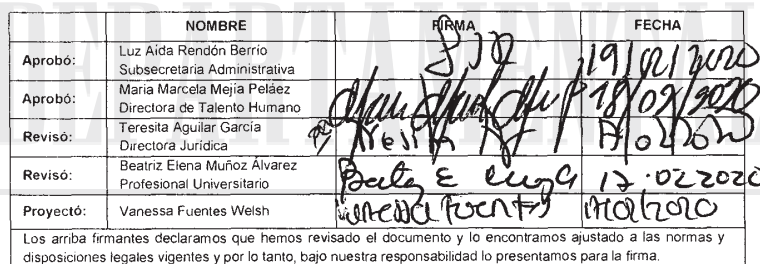 NOMBRE FIRMA FECHA
Aprobó: Luz Aida Rendón Berrío
Subsecretaria Administrativa 19/02/2020
Aprobó: Maria Marcela Mejía Peláez
Directora de Talento Humano 18/02/2020
Revisó: Teresita Aguilar García
Directora Jurídica
Revisó: Beatriz Elena Muñoz Álvarez
Profesional Universitario 17.02 2020
Proyectó: Vanessa Fuentes Welsh Vanessa Fuentes 17/02/2020
Los arriba firmantes declaramos que hemos revisado el documento y lo encontramos ajustado a las normas y
disposiciones legales vigentes y por lo tanto, bajo nuestra responsabilidad lo presentamos para la firma.